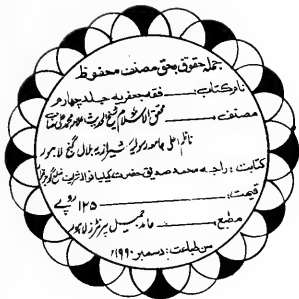 جملہ حقوق بحق مصنف محفوظ
نام کتاب: ــــــ فقہ جعفریہ جلد چہارم
مصنف ــــــ محقق الاسلام شیخ الحدیث علامہ محمد علی صاحب
ناظم اعلیٰ جامعہ رسولیہ شیرازیہ بلال گنج لاہور
کتابت: راجہ محمد صدیق حضرت کیلیانوالہ شریف ضلع گوجرانوالہ
قیمت: ــــــ ۱۲۵ روپے
مطبع: ــــــ حامد جمیل پرنٹرز لاہور
سن طباعت: دسمبر ۱۹۹۰ء